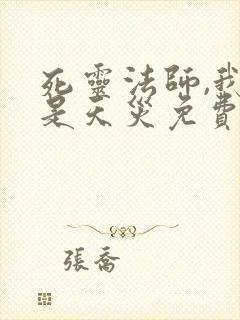 死靈法師,我
是天災免費
張喬